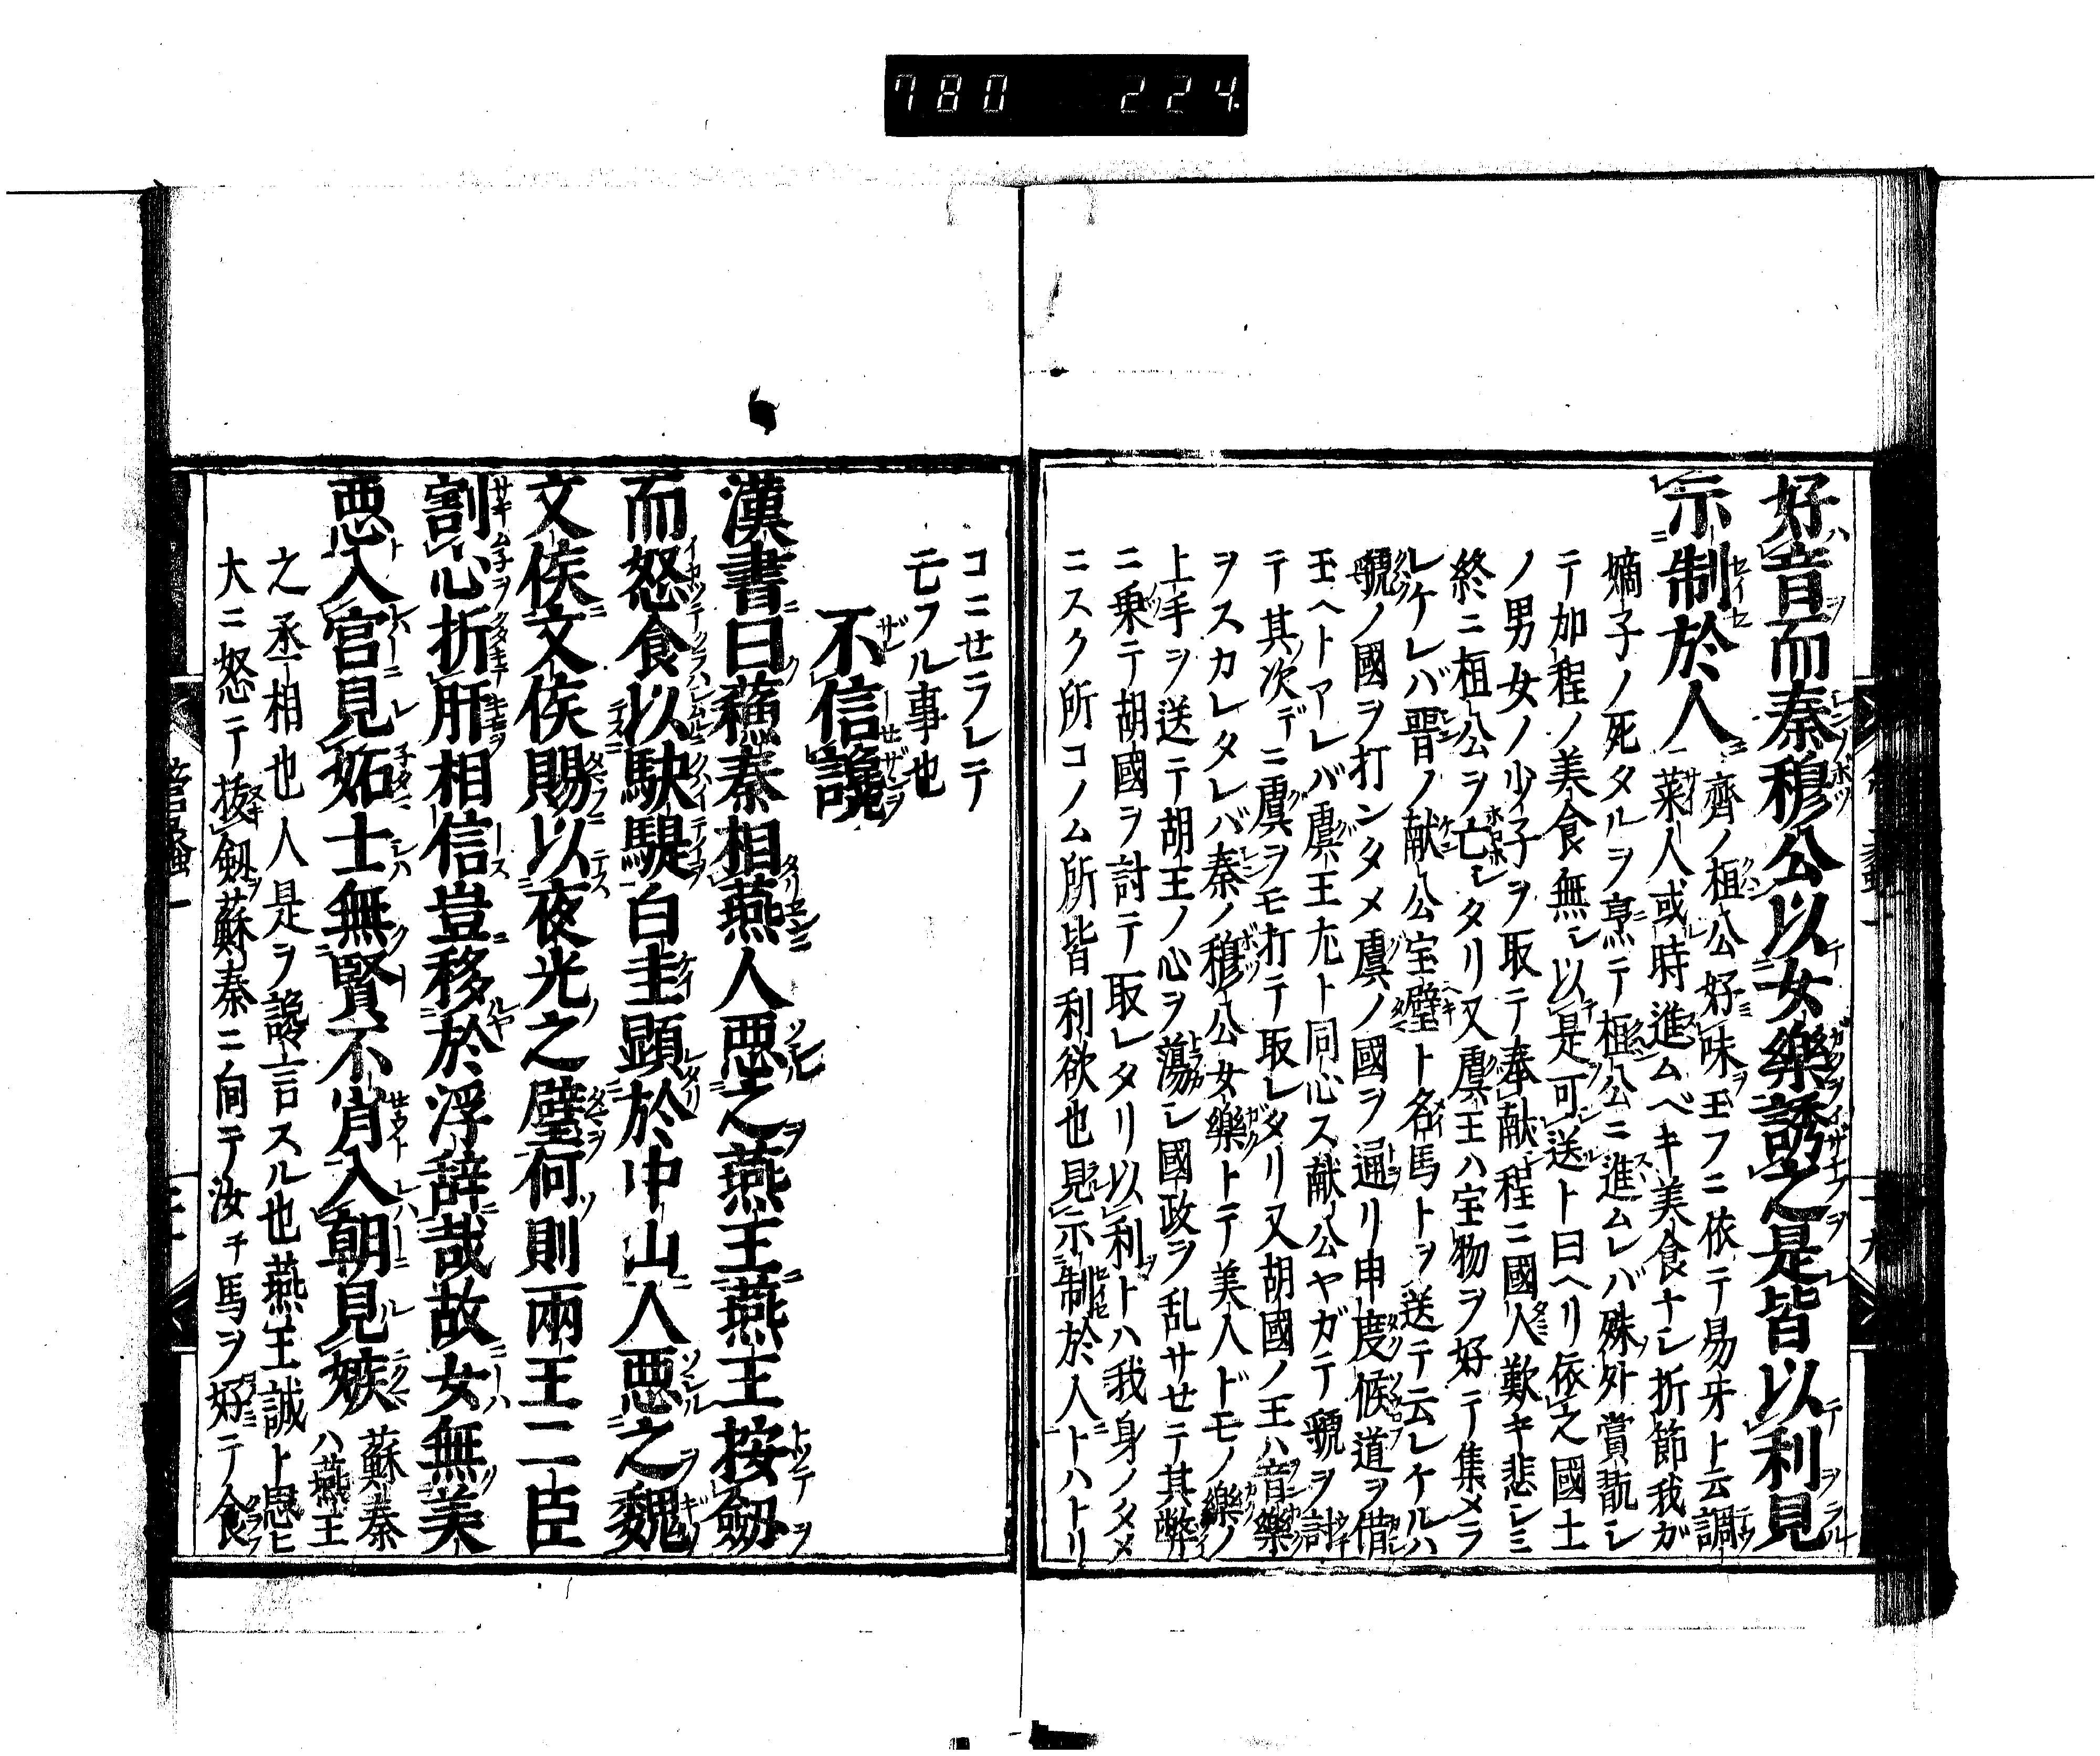 780 224
好音而秦穆公以女樂誘之是皆以利見
示制於人
齊ノ桓公好味玉フニ依テ易牙ト云調
菜人或時進ムベキ美食ナシ折節我ガ
嫡子ノ死タルヲ烹テ桓公ニ進ムレバ殊外賞翫シ
テ加程ノ美食無シ以是可送ト曰ヘリ依之國土
ノ男女ノ少子ヲ取テ奉献程ニ國人歎キ悲シミ
終ニ桓公ヲ亡シタリ又虞王ハ宝物ヲ好テ集メラ
レケレバ晋ノ献公宝璧ト名馬トヲ送テ云レケルハ
虢ノ國ヲ打ンタメ虞ノ國ヲ通リ申度候道ヲ借
玉ヘトアレバ虞王尤ト同心ス献公ヤガテ虢ヲ討
テ其次デニ虞ヲモ打テ取レタリ又胡國ノ王ハ音樂
ヲスカレタレバ秦ノ穆公女樂トテ美人ドモノ樂ノ
上手ヲ送テ胡王ノ心ヲ蕩シ國政ヲ乱サセテ其弊
ニ乗テ胡國ヲ討テ取レタリ以利トハ我身ノタメ
ニスク所コノム所皆利欲也見示制於人トハトリ
コニセラレテ
モフル事也
不信讒
漢書曰蘓秦相燕人悪之燕王燕王按劔
而怒食以駃騠白圭顕於中山人悪之魏
文侯文侯賜以夜光之璧何則兩王二臣
割心折肝相信豈移於浮辞哉故女無美
悪入宮見妬士無賢不肖入朝見嫉
蘇秦
ハ燕王
之丞相也人是ヲ讒言スル也燕王誠ト思ヒ
大ニ怒テ抜劔蘇秦ニ向テ汝チ馬ヲ好テ食